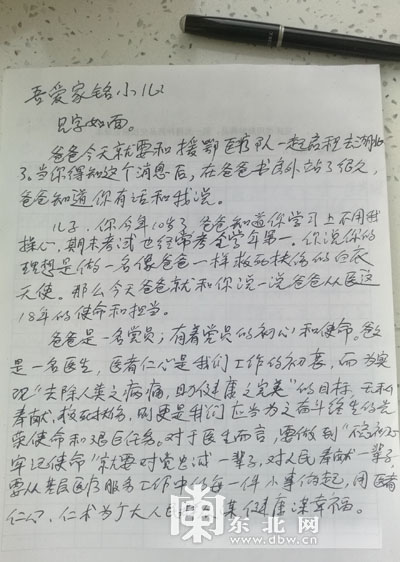 吾爱家铭小儿
见字如面。
爸爸今天就要和援鄂医疗队一起启程去湖北
了。当你得知这个消息后，在爸爸书房外站了很久，
爸爸知道你有话和我说。
儿子，你今年10岁了，爸爸知道你学习上不用我
操心，期末考试也经常考全学年第一。你说你的
理想是做一名像爸爸一样救死扶伤的白衣
天使。那么今天爸爸就和你说一说爸爸从医这
18年的使命和担当。
爸爸是一名党员，有着党员的初心和使命。爸爸
是一名医生，医者仁心是我们工作的初衷，而为实
现“去除人类之病痛，助健康之完美”的目标，无私
奉献、救死扶伤，则更是我们应当为之奋斗终生的光
荣使命和艰巨任务。对于医生而言，要做到“不忘初心
牢记使命”就要对党忠诚一辈子，对人民奉献一辈子，
要从基层医疗服务工作中的每一件小事做起，用医者
仁心、仁术为广大人民 健康谋幸福。
东北网
www.dbw.cn